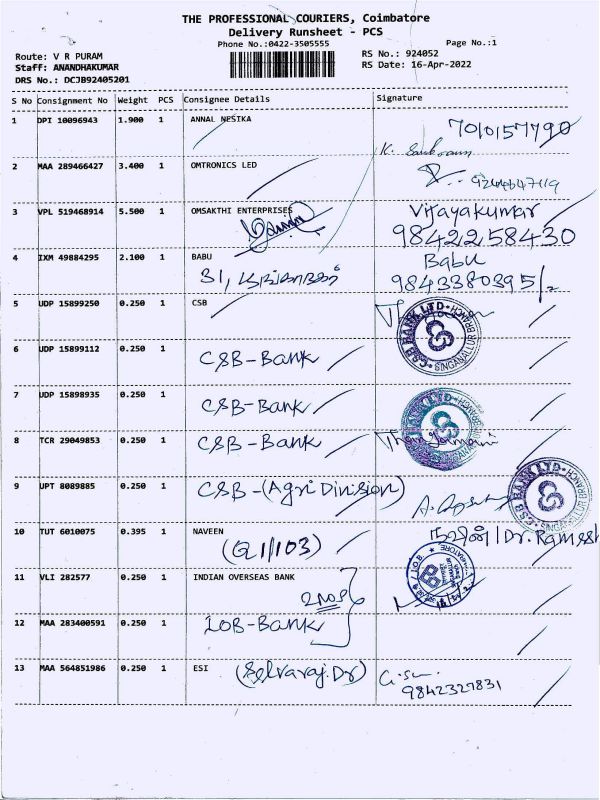 THE PROFESSIONAL COURIERS, Coimbatore
Delivery Runsheet - PCS
Phone No.:0422-3505555
Page No.:1
Route: V R PURAM
RS No.: 924052
Staff: ANANDHAKUMAR
RS Date: 16-Apr-2022
DRS No.: DCJB92405201
S No Consignment No Weight PCS Consignee Details Signature
1 DPI 10096943 1.900 1 ANNAL NESIKA 7010157790
K.
2 MAA 289466427 3.400 1 OMTRONICS LED
3 VPL 519468914 5.500 1 OMSAKTHI ENTERPRISES Vijayakumar
9842258430
4 IXM 49884295 2.100 1 BABU Babu
31, 9843380395/-
5 UDP 15899250 0.250 1 CSB
CSB BANK LTD. SINGANALLUR BRANCH
6 UDP 15899112 0.250 1 CSB-Bank
7 UDP 15898935 0.250 1 CSB-Bank
CSB BANK LTD. SINGANALLUR BRANCH
8 TCR 29049853 0.250 1 CSB-Bank Thangamani
9 UPT 8089885 0.250 1 CSB-(Agri Division) A.
CSB BANK LTD. SINGANALLUR BRANCH
10 TUT 6010075 0.395 1 NAVEEN நவீன் / Dr. Ramesh
(Q1/103)
11 VLI 282577 0.250 1 INDIAN OVERSEAS BANK
2 Nos
12 MAA 283400591 0.250 1 IOB-Bank
13 MAA 564851986 0.250 1 ESI (Selvaraj.Dr)
9842327831